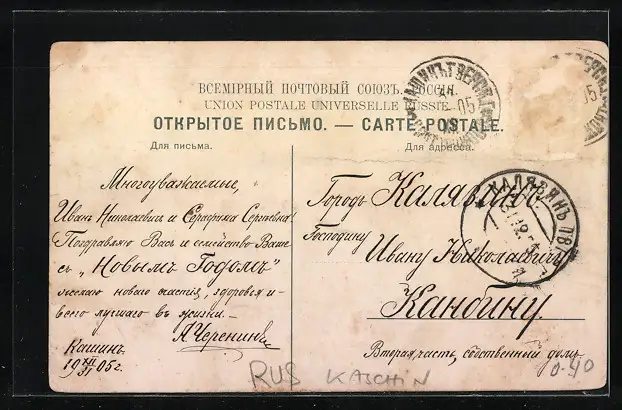 ВСЕМІРНЫЙ ПОЧТОВЫЙ СОЮЗЪ. РОССІЯ.
UNION POSTALE UNIVERSELLE RUSSIE.
ОТКРЫТОЕ ПИСЬМО. — CARTE POSTALE.
Для письма.
Для адреса.
Многоуважаемые,
Иванъ Николаевичъ и Серафима Сергѣевна!
Поздравляю Васъ и семейство Ваше
съ „Новымъ Годомъ"
желаю новаго счастія, здоровья и
всего лучшаго въ жизни.
А. Черенинъ
Кашинъ
19 XII/31 05 г.
Городъ Калязинъ.
Господину
Ивану Николаевичу
Канбину.
Вторая часть, собственный домъ
05
05
КАЛЯЗИНЪ ТВЕР.
RUS KASCHIN
0-40